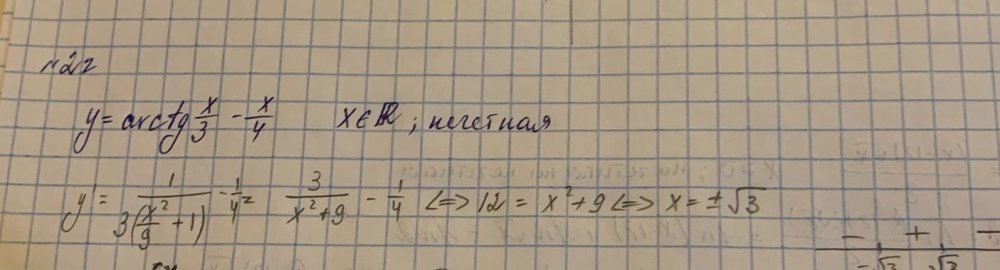 №2г
y = arctg x/3 - x/4 x∈ℝ; нечетная
y' = 1/(3(x²/9 + 1)) - 1/4 = 3/(x²+9) - 1/4 <=> 12 = x²+9 <=> x = ±√3
- + -
-√3 √3